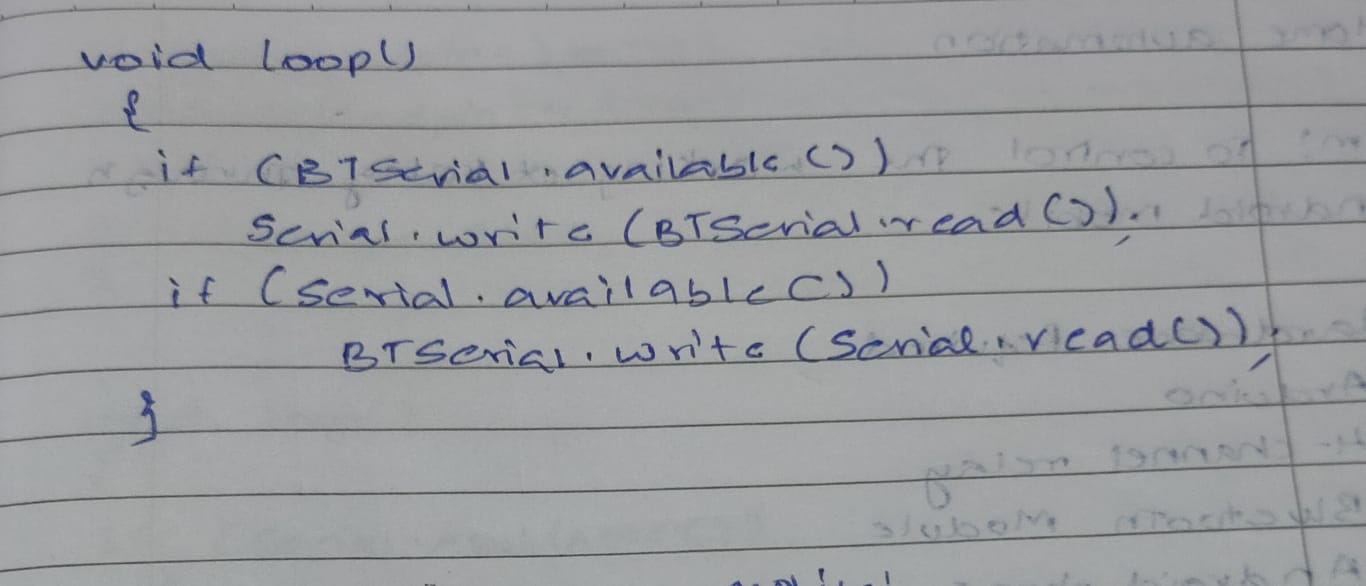 void loop()
{
if (BTSerial.available())
Serial.write (BTSerial.read());
if (Serial.available())
BTSerial.write (Serial.read());
}